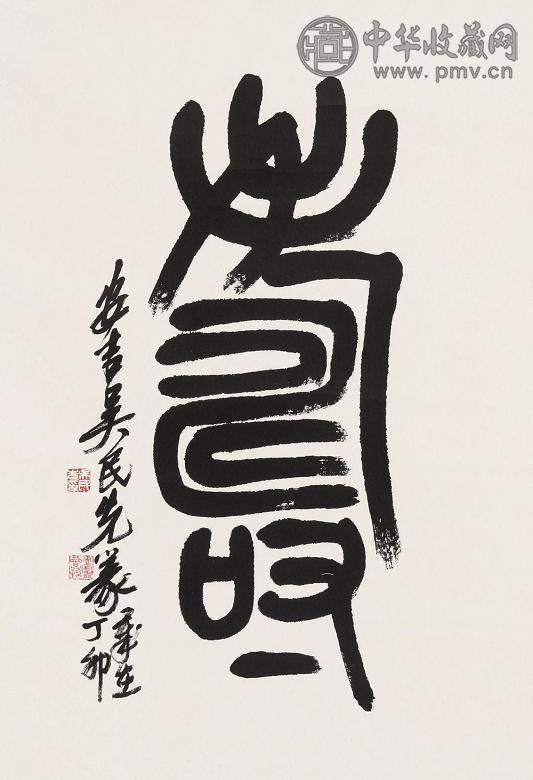 中华收藏网
www.pmv.cn
壽
安吉吴民先篆
歲在
丁卯